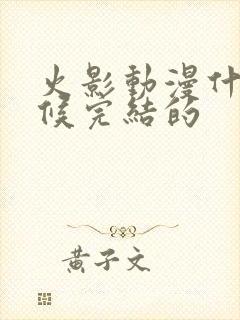 火影動漫什
候完結的
黃子文